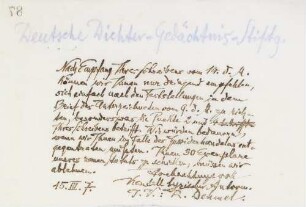 78
Deutsche Dichter-Gedächtnis-Stiftg.
Nach Empfang Ihres Schreibens vom 14. d. M.
können wir Ihnen nur dringend empfehlen,
sich einfach nach den Feststellungen in dem
Brief der Unterzeichneten vom 9. d. M. zu rich-
ten, besonders was die Punkte 2 und
Ihres Schreibens betrifft. Wir würden bedauern,
wenn wir Ihnen im Falle der
gegentreten müssten. Ihnen 30 Exemplare
zu schicken, müssen wir
ablehnen. Hochachtungsvoll
15. III. 7.
R. Dehmel.